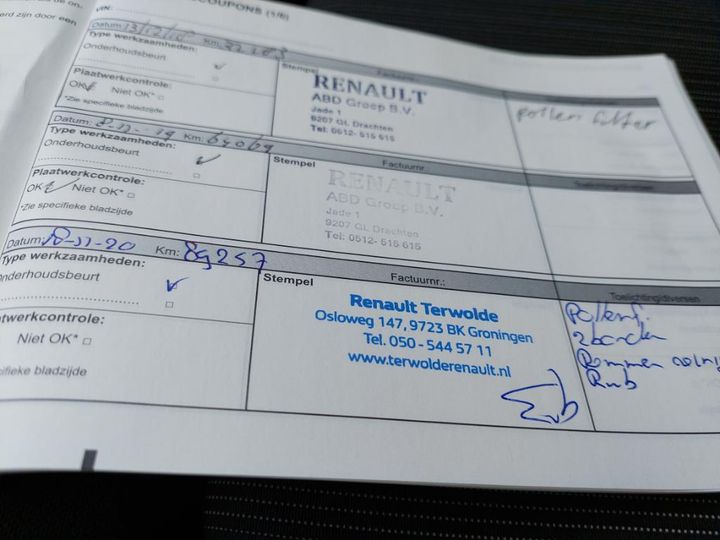 COUPONS (1/6)
VIN:
Datum: 13/12/ Km:
Type werkzaamheden:
Onderhoudsbeurt
Plaatwerkcontrole:
OK Niet OK*
*Zie specifieke bladzijde
Stempel
Factuurnr.:
RENAULT
ABD Groep B.V.
Jade 1
9207 GL Drachten
Tel: 0512- 515 615
pollen filter
Datum: Km: 69069
Type werkzaamheden:
Onderhoudsbeurt
Plaatwerkcontrole:
OK Niet OK*
*Zie specifieke bladzijde
Stempel
Factuurnr.:
RENAULT
ABD Groep B.V.
Jade 1
9207 GL Drachten
Tel: 0512- 515 615
Toelichting/diversen
Datum: 18-11-20 Km: 89257
Type werkzaamheden:
Onderhoudsbeurt
Plaatwerkcontrole:
Niet OK*
specifieke bladzijde
Stempel
Factuurnr.:
Renault Terwolde
Osloweg 147, 9723 BK Groningen
Tel. 050 - 544 57 11
www.terwolderenault.nl
Toelichting/diversen
Pollenf.
2banden
Remmen
Rub